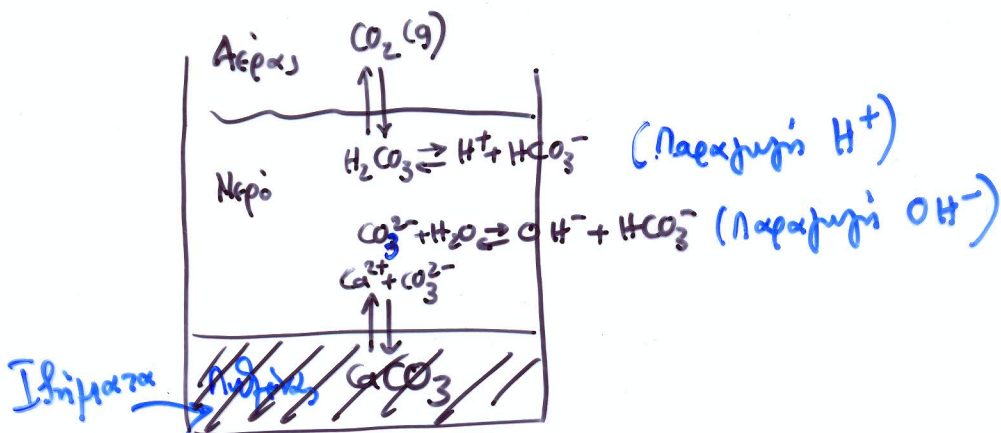 Αέρας CO₂ (g)
H₂CO₃ ⇌ H⁺ + HCO₃⁻ (Παραγωγή H⁺)
Νερό
CO₃²⁻ + H₂O ⇌ OH⁻ + HCO₃⁻ (Παραγωγή OH⁻)
Ca²⁺ + CO₃²⁻
Ιζήματα Πυθμένας CaCO₃